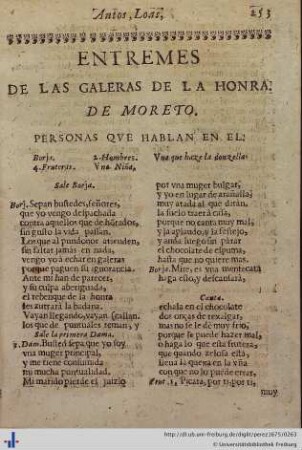 Autos, Loas, 253
ENTREMES
DE LAS GALERAS DE LA HONRA.
DE MORETO.
PERSONAS QVE HABLAN EN EL:
Borja. 2. Hombres. Vna que haze la donzella.
4. Fruteras. Vna Niña,
Sale Borja.
Borj. Sepan bustedes, señores,
que yo vengo despachada
contra aquellos que de honrados,
sin gusto la vida passan.
Los que al pundonor atienden,
sin faltar jamàs en nada,
vengo yo à echar en galeras
porque paguen su ignorancia.
Ante mi han de parecer,
y su culpa aberiguada,
el rebenque de la honra
les
Vayan llegando, vayan,
los que de puntuales
Sale la primera Dama.
1. Dam. Busted sepa que yo soy
vna muger principal,
y me tiene consumida
mi mucha puntualidad.
Mi marido pierde el juizio
por vna muger bulgar,
y yo en lugar de arañalla;
muy atala al que dirán,
la suelo traer à casa,
porque no canta muy mal;
y la aplaudo, y la festejo,
y anda luego sin parar
el chocolate de espuma,
hasta que no quiere mas.
Borja. Mire, es vna mentecata
haga esso, y descansará.
Canta.
echala en el chocolate
dos onças de rexalgar,
mas no se le dé muy frio,
porque se puede hazer mal,
o haga lo que esta frutera,
que quando zelosa está,
lleua la queca en la vña
con que no lo puede errar.
Frut. 1. Picara, por ti, por ti,
muy
http://dl.ub.uni-freiburg.de/diglit/perez1675/0263
© Universitätsbibliothek Freiburg